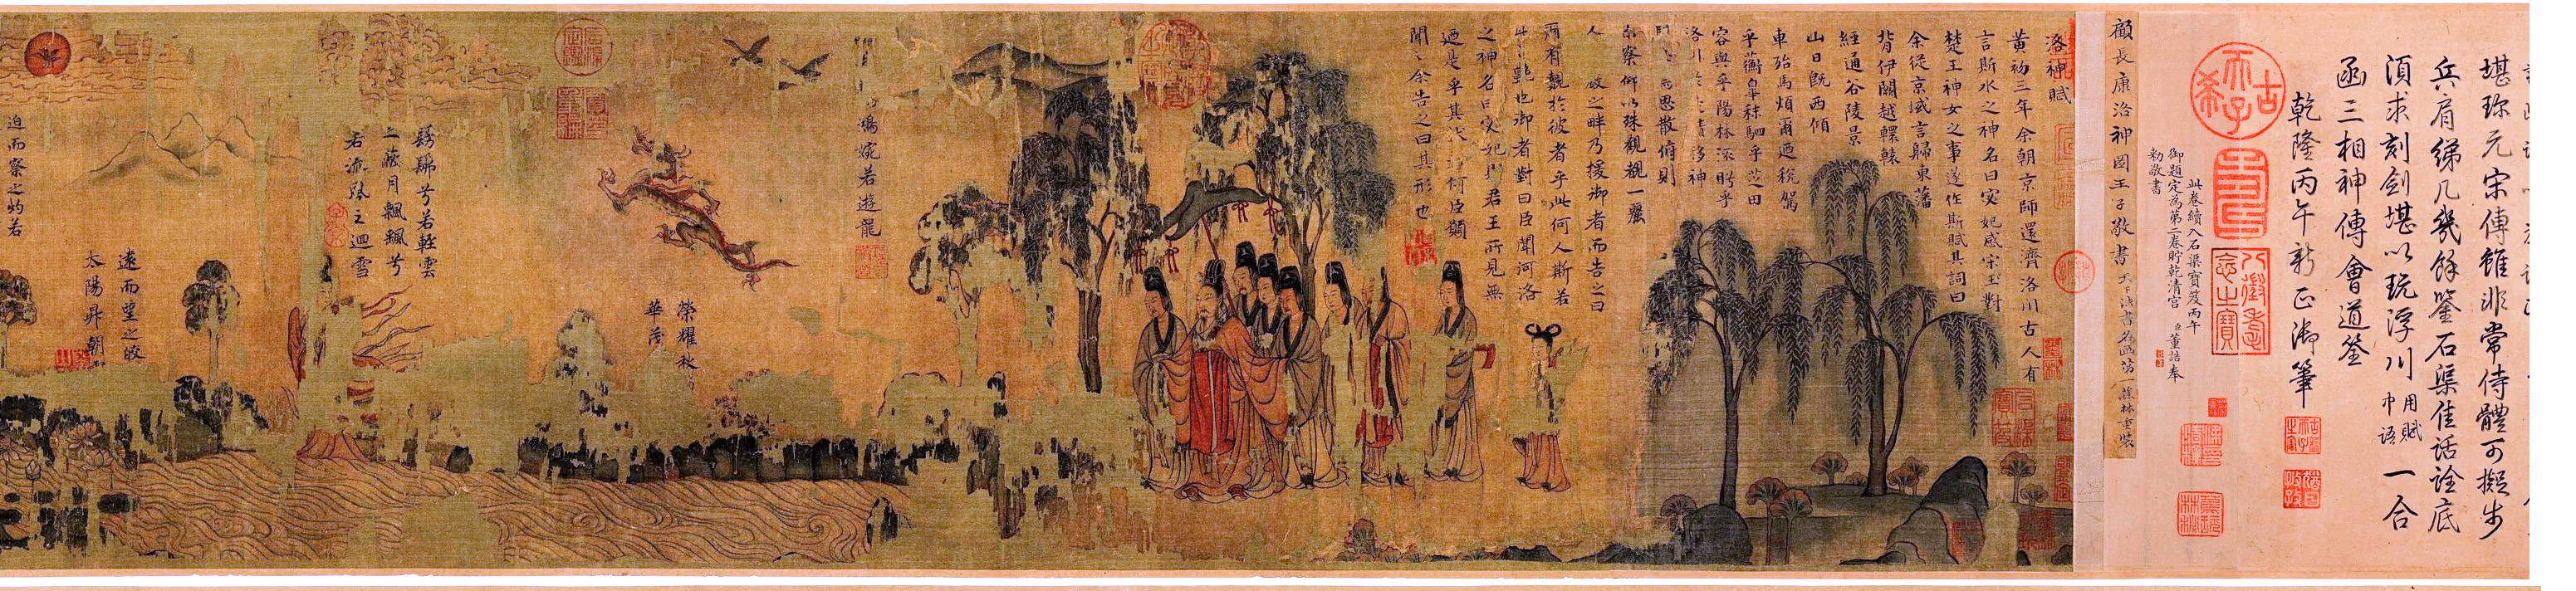 堪珎元宋傳雖非常侍體可擬步
兵肩綈几幾餘鑒石渠佳話詮底
湏求刻劍堪以玩浮川用賦中語一合
函三相神傳會道筌
乾隆丙午新正御筆
古希天子
八徵耄念之寶
此卷續入石渠寶笈丙午
御題定為第二卷貯乾清宮 臣董誥奉
勅敬書
顧長康洛神圖王子敬書 天下法書名畫第一 蕉林重裝
洛神賦
黃初三年余朝京師還濟洛川古人有
言斯水之神名曰宓妃感宋玉對
楚王神女之事遂作斯賦其詞曰
余從京域言歸東藩
背伊闕越轘轅
經通谷陵景
山日旣西傾
車殆馬煩爾迺稅駕
乎蘅皋秣駟乎芝田
容與乎陽林流眄乎
洛川於是精移神
焉思散俯則
未察仰以殊觀覩一麗
人 巖之畔乃援御者而告之曰
爾有覿於彼者乎此何人斯若
此之豔也御者對曰臣聞河洛
之神名曰宓妃則君王所見無
迺是乎其狀若何臣願
聞之余告之曰其形也
鴻婉若遊龍
榮耀秋
華茂
髣髴兮若輕雲
之蔽月飄飄兮
若流風之迴雪
遠而望之皎
太陽升朝
迫而察之灼若